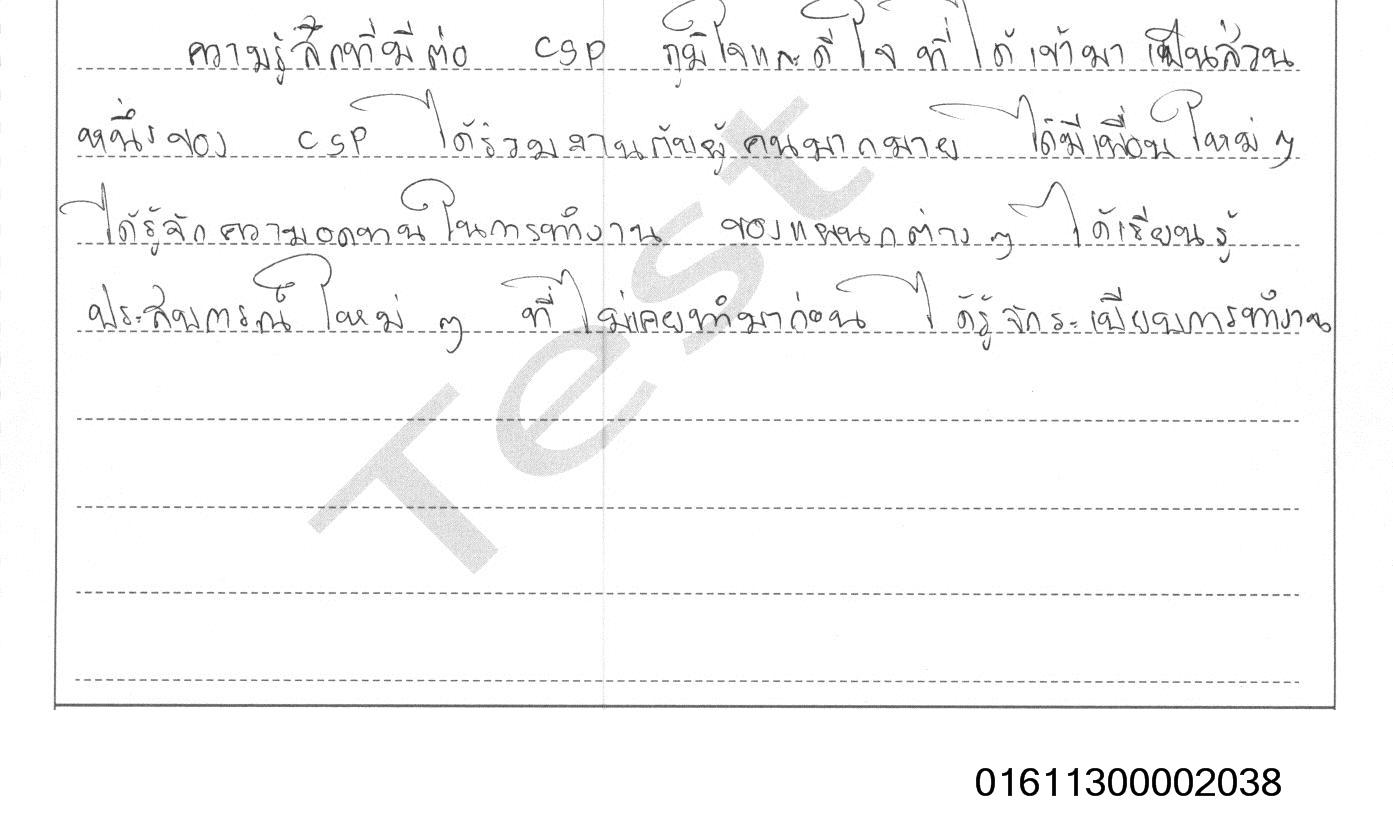 ความรู้สึกที่มีต่อ CSP ภูมิใจและดีใจที่ได้เข้ามาเป็นส่วน
หนึ่งของ CSP ได้ร่วมงานกับผู้คนมากมาย ได้มีเพื่อนใหม่ๆ
ได้รู้จักความอดทนในการทำงาน ของแผนกต่างๆ ได้เรียนรู้
ประสบการณ์ใหม่ๆ ที่ไม่เคยทำมาก่อน ได้รู้จักระเบียบการทำงาน
Test
01611300002038